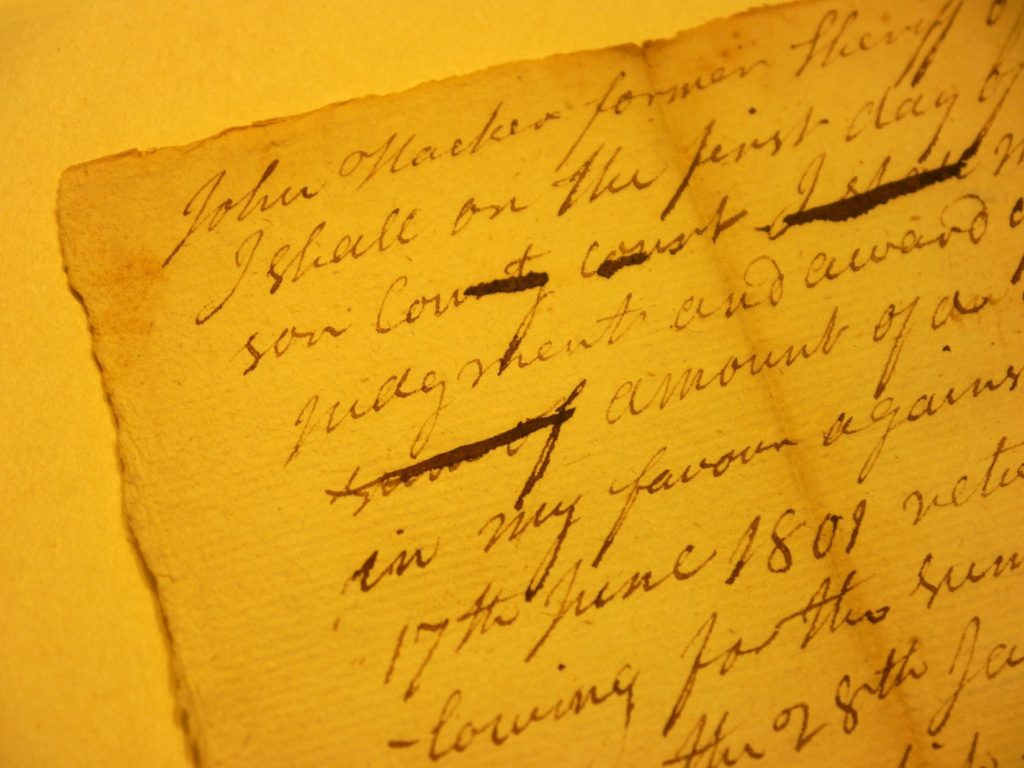 John Hacker former Sheriff of
I shall on the first day of
son County court I shall
judgment and award
sum of amount of an
in my favour against
17th June 1801 retu
-lowing for the sum
the 28th Ja